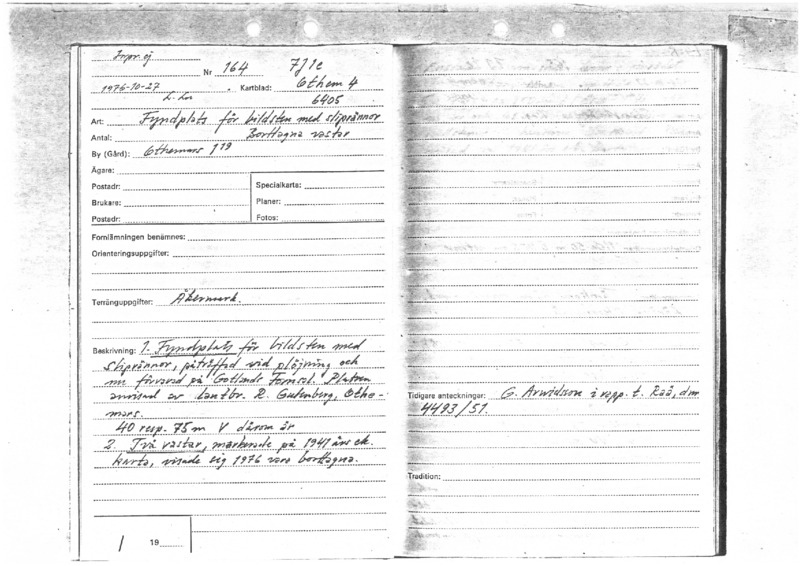 Inpr. ej
Nr 164 7J 1c
1976-10-27 Kartblad: Othem 4
6405
Art: Fyndplats för bildsten med sliprännor
Antal: Borttagna vastar
By (Gård): Othemars 1 19
Ägare:
Postadr:
Brukare:
Postadr:
Specialkarta:
Planer:
Fotos:
Fornlämningen benämnes:
Orienteringsuppgifter:
Terränguppgifter: Åkermark.
Beskrivning: 1. Fyndplats för bildsten med
sliprännor, påträffad vid plöjning och
nu förvarad på Gotlands Fornsal. Platsen
anvisad av lantbr. R. Gutenberg, Othe-
mars.
40 resp. 75 m V därom är
2. Två vastar, markerade på 1941 års ek.
karta, visade sig 1976 vara borttagna.
1 19
Tidigare anteckningar: G. Arwidsson i rapp. t. Raä, dnr
4493/51.
Tradition: